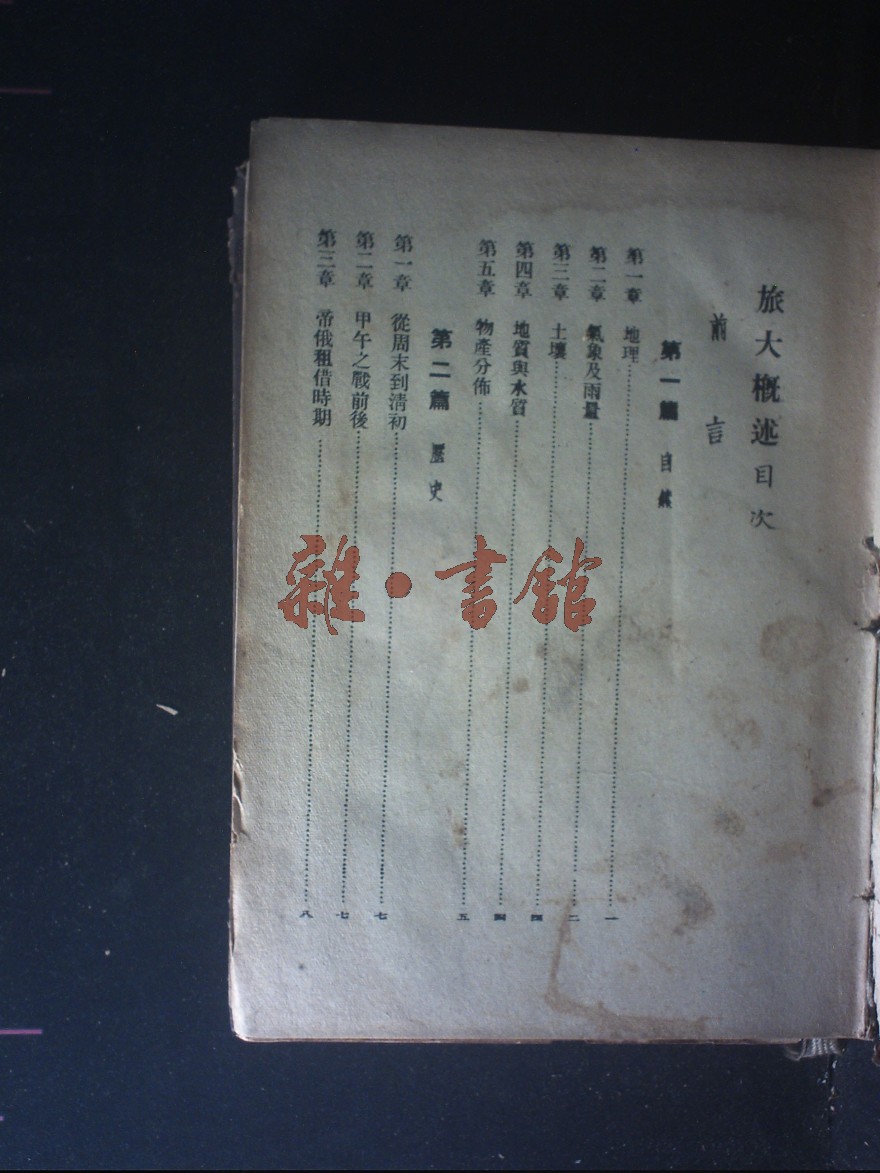 旅大概述目次
前言
第一篇 自然
第一章 地理……一
第二章 氣象及雨量……二
第三章 土壤……四
第四章 地質與水質……四
第五章 物產分佈……五
第二篇 歷史
第一章 從周末到清初……七
第二章 甲午之戰前後……七
第三章 帝俄租借時期……八
雜·書館